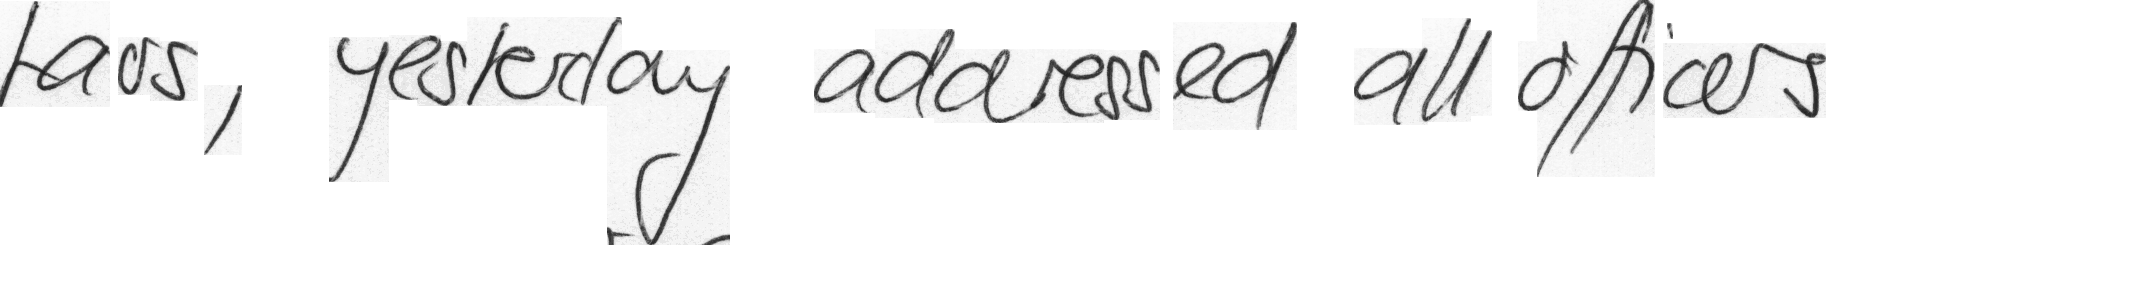 Laos, yesterday addressed all officers